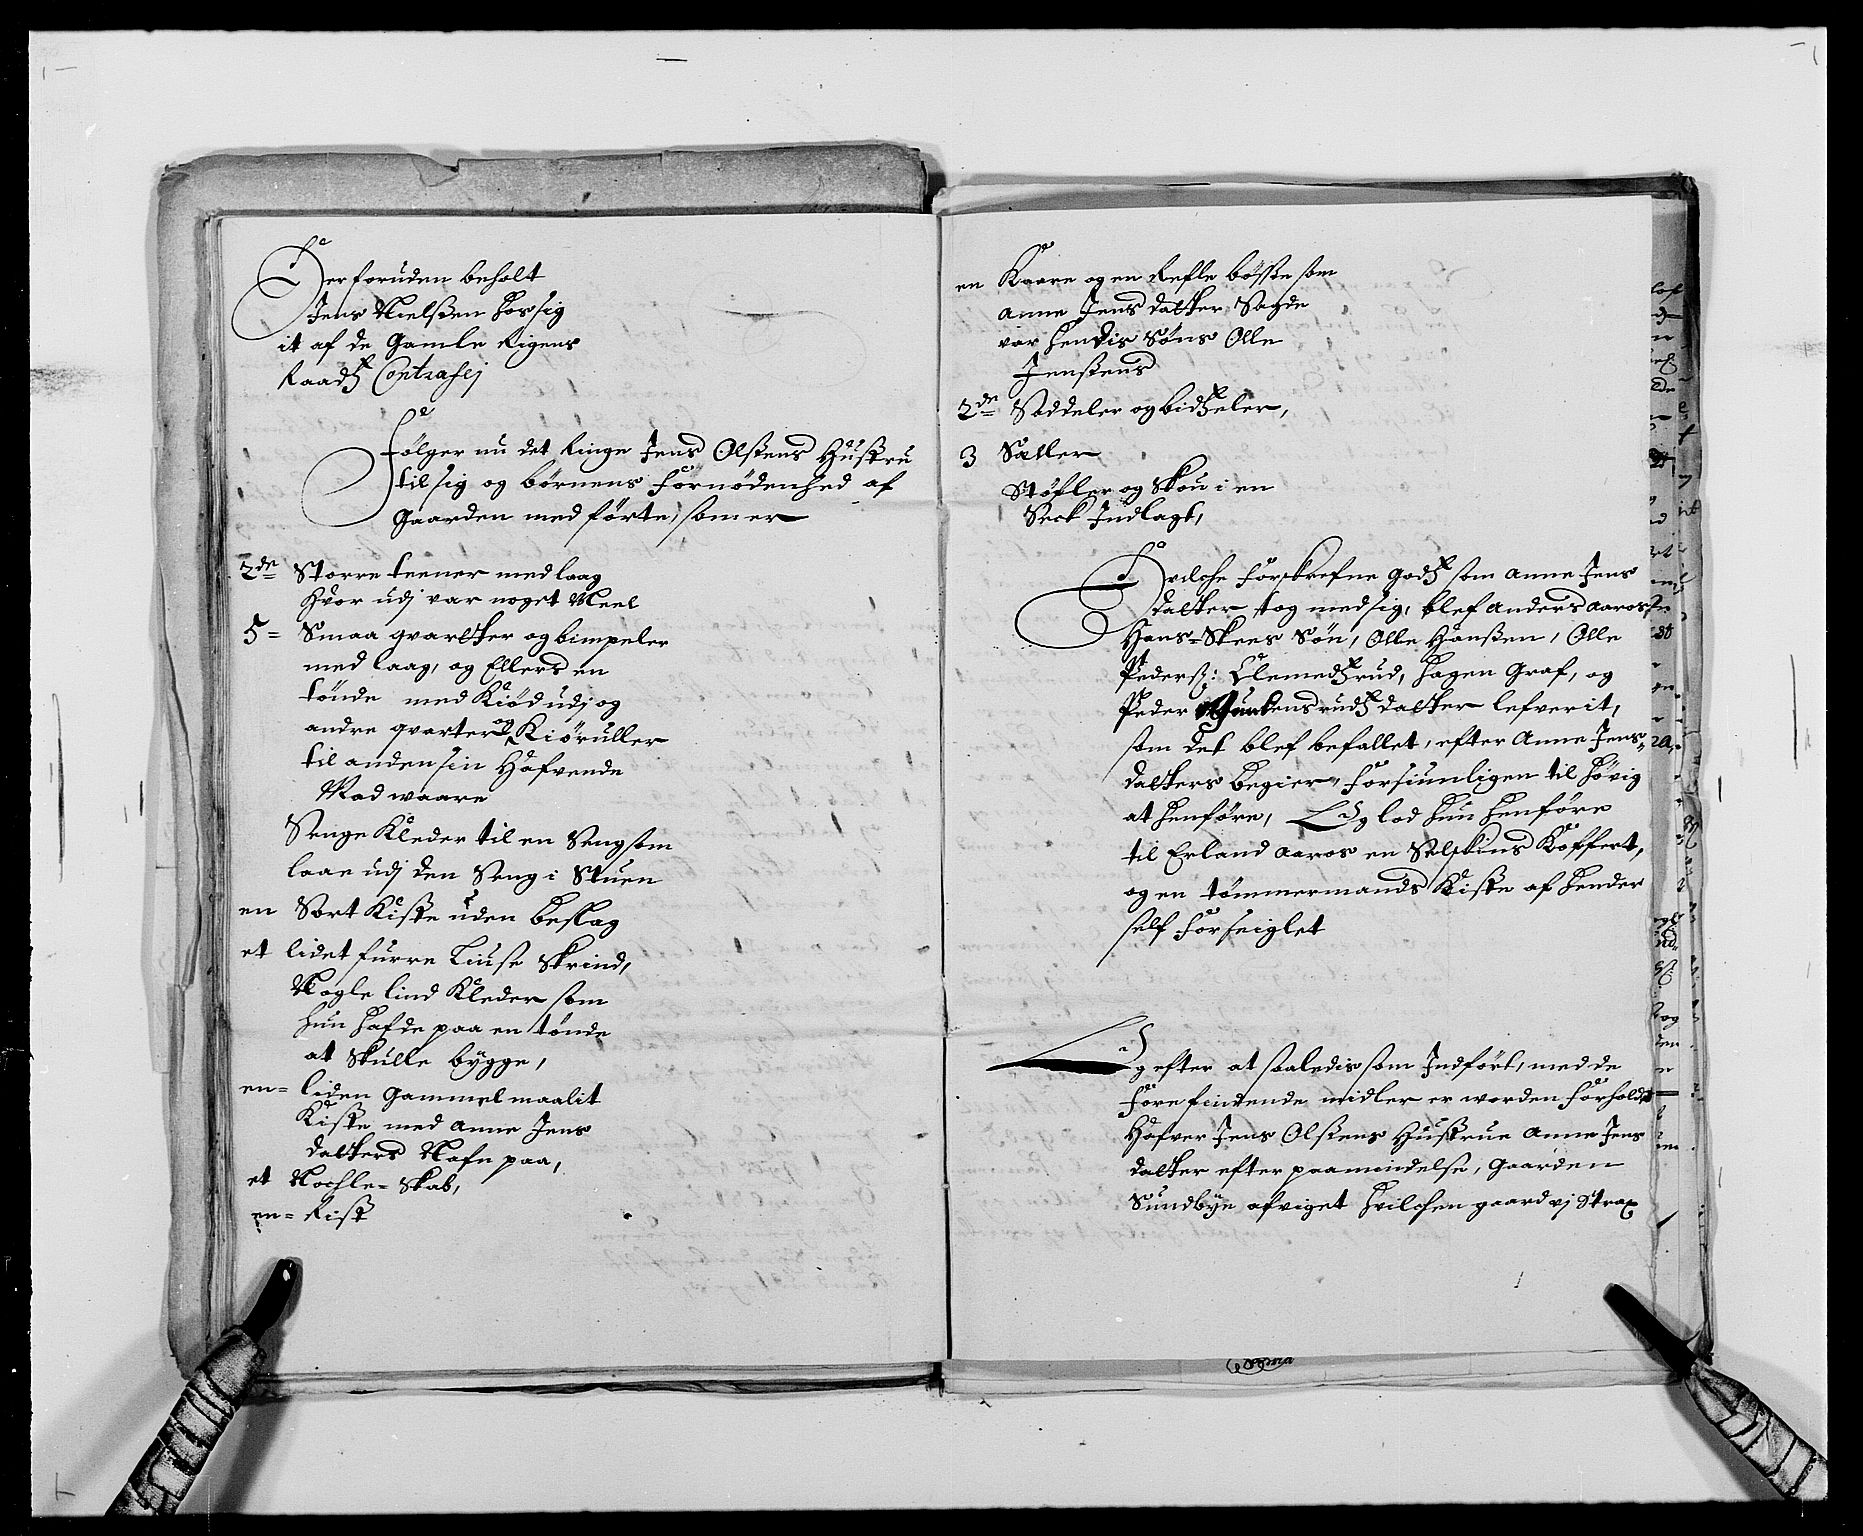 Derforuden beholt
Jens Nielßen hos sig
it af de Gamle Rigens
Raadß Contrafej
Følger nu det Ringe Jens Olßens Hustru
til sig og børnens Fornødenhed af
Gaarden med førte, som er
2de Storre teener med laag
hvor udj var noget Meel
5 = Smaa qvartter og bimpeler
med laag, og Ellers en
tønde med Kiød udj og
andre qvarter og Kiøruller
til anden sin Hafvende
Madwaare
Senge Kleder til en Seng som
laae udj den Seng i Stuen
en Sort Kiste uden beslag
et lidet furre Liuse Skrind,
Nogle lind Kleder som
hun hafde paa en tønde
at Skulle bygge,
en = liden Gammel maalit
Kiste med Anne Jens
datters Nafn paa,
et Nochle = Skab,
en = Rist
en Kaare og en Refle bøsse som
Anne Jens datter Sagde
var hendis Søns Olle
Jenßens
2de Saddeler og bidßeler,
3 Sæller
Støfler og Skou i en
Seck Indlagt,
Hvilche forskrefne Godß som Anne Jens
datter tog med sig, blef Anders Aaros
Hans = Skees Søn, Olle Hanßen, Olle
Pederß: Clemedßrud, Hagen Graf, og
Peder datter lefverit,
som det blef befallet, efter Anne Jens
datters begier, forsiunligen til Høvig
at henføre, Og lod hun henføre
til Erland Aaros en Selskins Koffert,
og en tømmermands Kiste af hender
self forseiglet
Og efter at saaledis som Indført, med de
forefindende midler er worden forholdt
Hafver Jens Olßens Hustrue Anne Jens
datter efter paamindelse, Gaarden
Sundbye afviget hvilchen gaard vj Strax